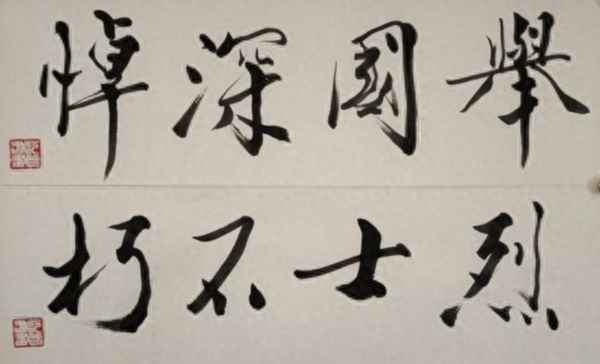 舉國深悼
烈士不朽